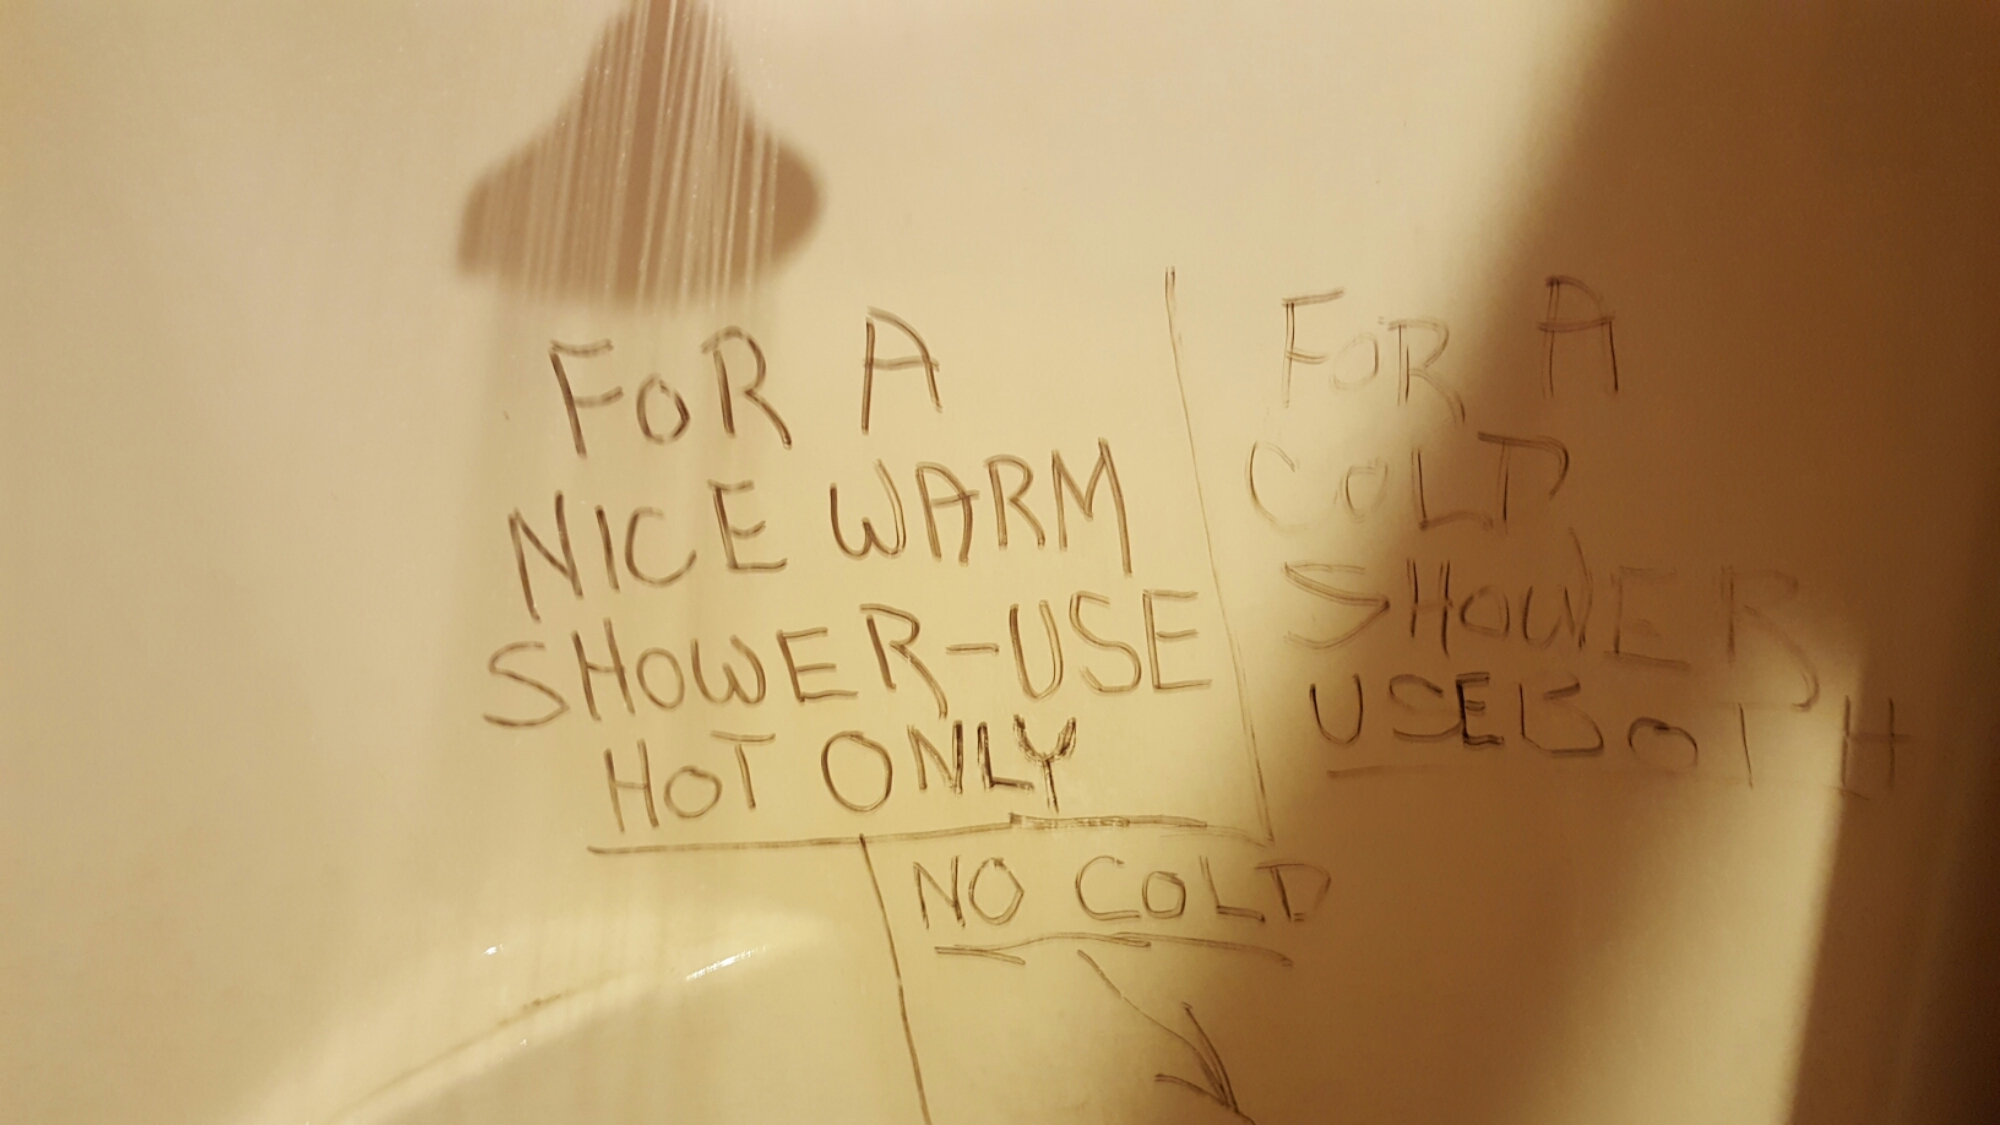 FOR A
NICE WARM
SHOWER-USE
HOT ONLY
FOR A
COLD
SHOWER
USE BOTH
NO COLD